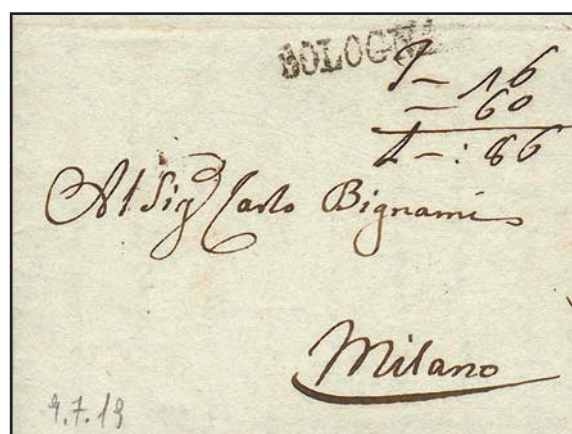 BOLOGNA
16
– 60
–: 86
Al Sig Carlo Bignami
Milano